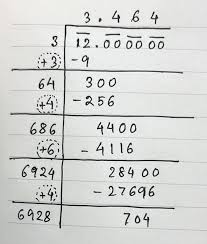 3.464
3 12.000000
+3 -9
64 300
+4 -256
686 4400
+6 -4116
6924 28400
+4 -27696
6928 704